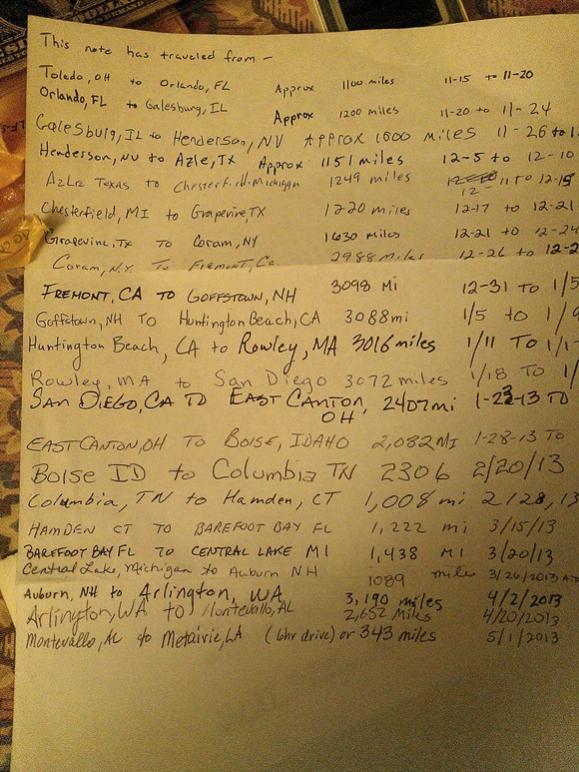 This note has traveled from -
Toledo, OH to Orlando, FL Approx 1100 miles 11-15 to 11-20
Orlando, FL to Galesburg, IL Approx 1200 miles 11-20 to 11-24
Galesburg, IL to Henderson, NV Approx 1600 miles 11-26 to 1
Henderson, NV to Azle, TX Approx 1151 miles 12-5 to 12-10
Azle Texas to Chesterfield-Michigan 1249 miles 12-11 to 12-15
Chesterfield, MI to Grapevine, TX 1220 miles 12-17 to 12-21
Grapevine, Tx To Coram, NY 1630 miles 12-21 to 12-24
Coram, N.Y. To Fremont, Ca. 2988 miles 12-26 to 12-2
FREMONT, CA TO GOFFSTOWN, NH 3098 Mi 12-31 TO 1/5
Goffstown, NH TO Huntington Beach, CA 3088mi 1/5 to 1/9
Huntington Beach, CA to Rowley, MA 3016 miles 1/11 TO 1/1
Rowley, MA to San Diego 3072 miles 1/18 TO 1/
SAN DIEGO, CA TO EAST CANTON, OH, 2407mi 1-23-13 TO
EAST CANTON, OH TO BOISE, IDAHO 2,082 MI 1-28-13 TO
BOISE ID to Columbia TN 2306 2/20/13
Columbia, TN to Hamden, CT 1,008 mi 2/28/13
HAMDEN CT TO BAREFOOT BAY FL 1,222 mi 3/15/13
BAREFOOT BAY FL TO CENTRAL LAKE MI 1,438 MI 3/20/13
Central Lake, Michigan to Auburn NH 1089 miles 3/26/2013
Auburn, NH to Arlington, WA 3,190 miles 4/2/2013
Arlington, WA to Montevallo, AL 2,652 Miles 4/20/2013
Montevallo, AL to Metairie, LA (6hr drive) or 343 miles 5/1/2013